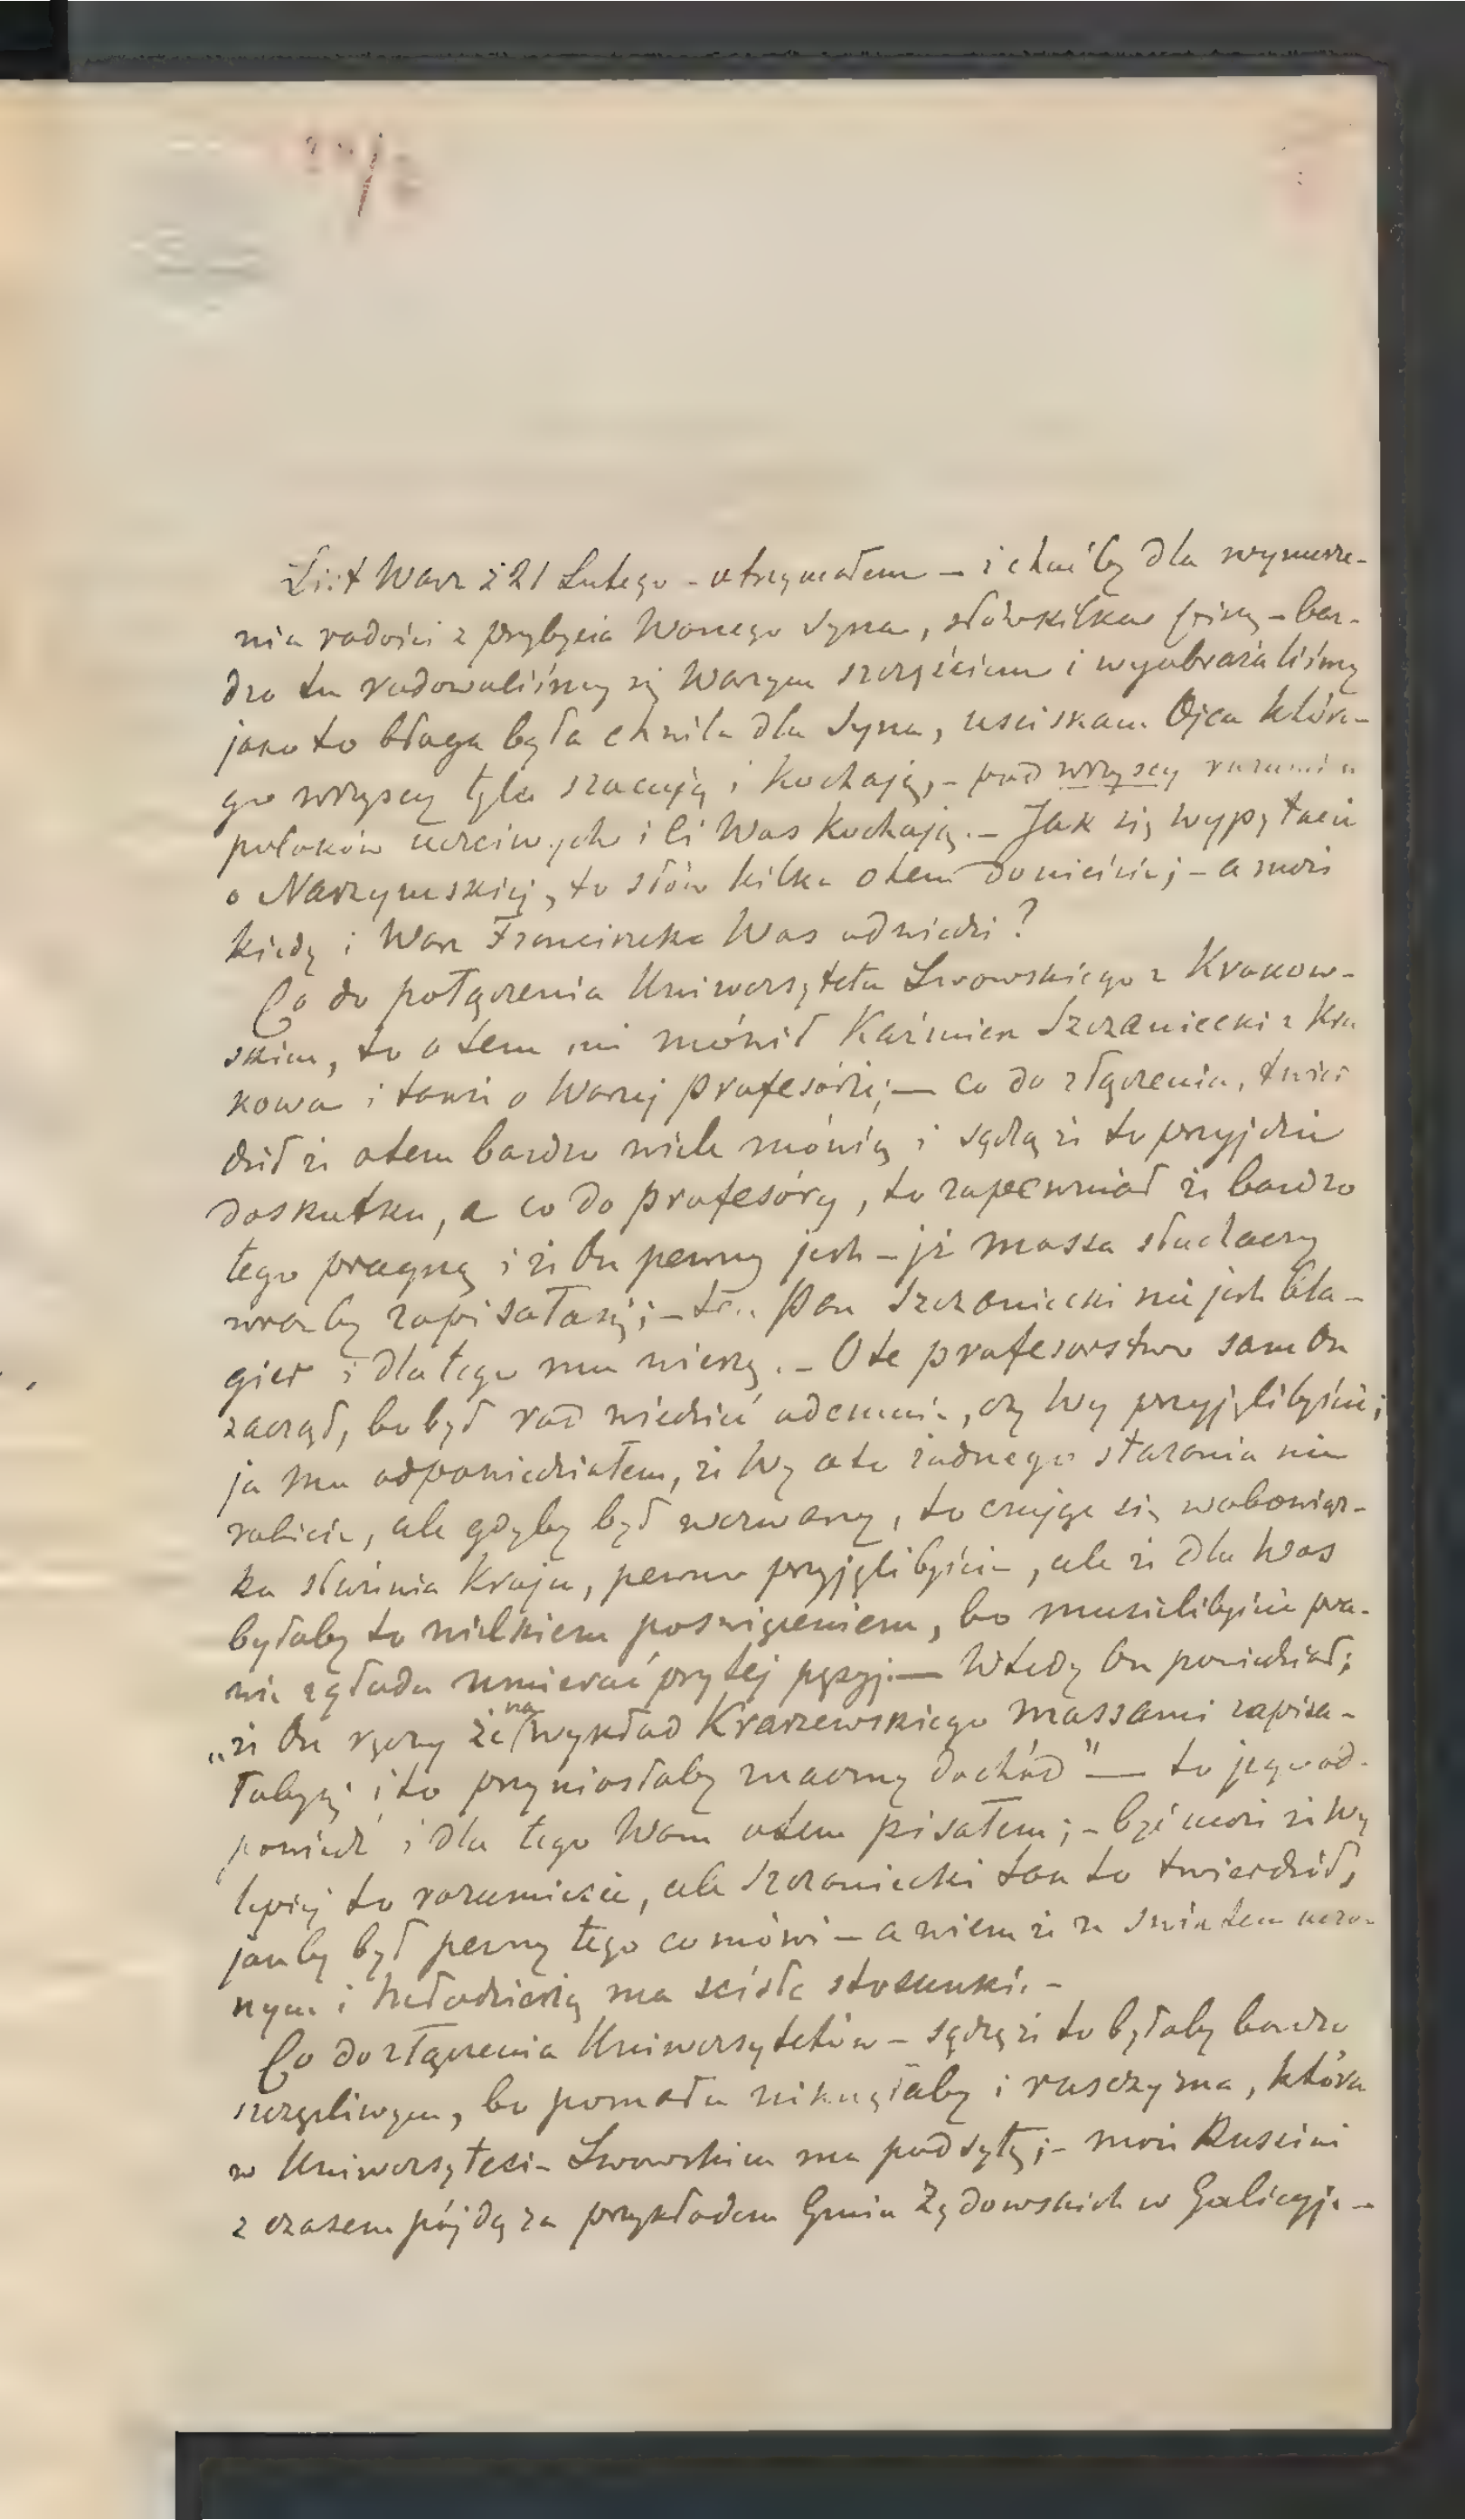 List Wasz z 21 Lutego - otrzymałem - i choćby dla wynurze-
nia radości z przybycia Waszego Syna, słówkilka piszę - bar-
dzo tu radowaliśmy się Waszym szczęściem i wyobrażaliśmy
jako to błoga była chwila dla Syna, usciskam Ojca które-
go wszyscy tyle szacują i kochają, - pod wszyscy rozumie
polaków uczciwych i ci Was kochają. - Jak się wypytacie
o Narzymskiej, to słów kilka otem donieście; - a może
kiedy i Wasz Franciszek Was odwiedzi?
Co do połączenia Uniwersytetu Lwowskiego z Krakow-
skim, to otem mi mówił Kaźmierz Szczaniecki z Kra
kowa i także o Waszej profesórze; — co do złączenia, twier
dził że otem bardzo wiele mówią i sądzą że to przyjdzie
doskutku, a co do profesóry, to zapewniał że bardzo
tego pragną i że On pewny jest - iż massa słuchaczy
wraz by zapisałasię; - Pan Szczaniecki nie jest bla-
gier i dla tego mu wierzę. - Ote profesorstwo sam On
zaczął, bo był rad wiedzieć odemnie, czy Wy przyjęlibyście;
ja mu odpowiedziałem, że Wy oto żadnego starania nie
robicie, ale gdyby był wezwany, to czując się wobowiąz-
ku służenia Kraju, pewno przyjęlibyście, ale że dla Was
byłoby to wielkiem poswięceniem, bo musielibyście pra-
wie zgłodu umierać przy tej pęzyji — Wtedy On powiedział;
„że On ręczy że na wykład Kraszewskiego massami zapisa-
łobysię i to przyniosłoby znaczny dochód" — to jego od-
powiedź i dla tego Wam otem pisałem; - być może że Wy
lepiej to rozumiecie, ale Szczaniecki tak to twierdził,
jakby był pewny tego co mówi - a wiem że ze swiatem uczo-
nym i młodzieżą ma scisłe stosunki. -
Co do złączenia Uniwersytetów - sądzę że to byłoby bardzo
szczęśliwym, bo pomału niknęłaby i rusczyzna, która
w Uniwersytecie Lwowskim ma podsytę; - może Rusini
z czasem pójdą za przykładem Gmin Żydowskich w Galicyji -